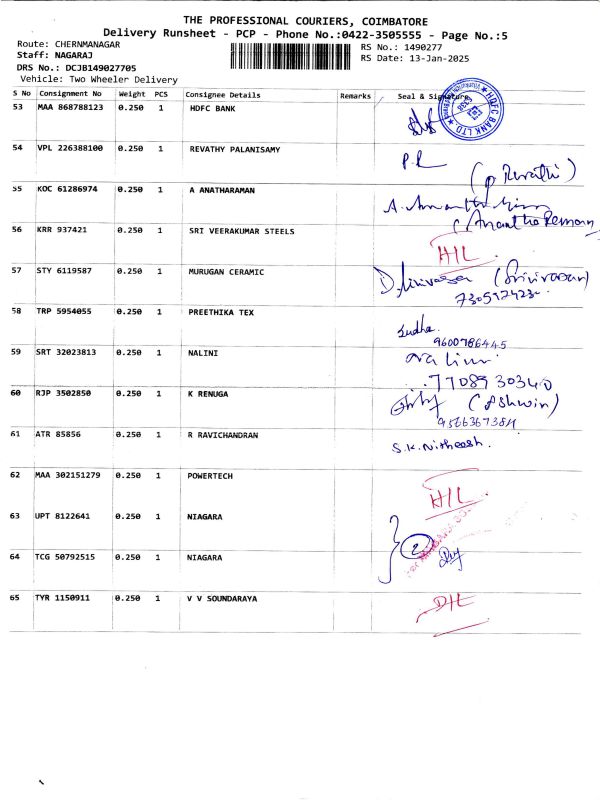 THE PROFESSIONAL COURIERS, COIMBATORE
Delivery Runsheet - PCP - Phone No.:0422-3505555 - Page No.:5
Route: CHERNMANAGAR
Staff: NAGARAJ
DRS No.: DCJB149027705
Vehicle: Two Wheeler Delivery
RS No.: 1490277
RS Date: 13-Jan-2025
S No Consignment No Weight PCS Consignee Details Remarks Seal & Signature
53 MAA 868788123 0.250 1 HDFC BANK
HDFC BANK LTD.
54 VPL 226388100 0.250 1 REVATHY PALANISAMY
P.R (P Revathi)
55 KOC 61286974 0.250 1 A ANATHARAMAN
(Anantha Raman)
56 KRR 937421 0.250 1 SRI VEERAKUMAR STEELS
H/L
57 STY 6119587 0.250 1 MURUGAN CERAMIC
D. Srinivasan (Srinivasan)
58 TRP 5954055 0.250 1 PREETHIKA TEX
Sudha
9600786445
59 SRT 32023813 0.250 1 NALINI
Nalini
7708930340
60 RJP 3502850 0.250 1 K RENUGA
(Ashwin)
61 ATR 85856 0.250 1 R RAVICHANDRAN
S.K. Nitheesh.
62 MAA 302151279 0.250 1 POWERTECH
H/L
63 UPT 8122641 0.250 1 NIAGARA
2
64 TCG 50792515 0.250 1 NIAGARA
65 TYR 1150911 0.250 1 V V SOUNDARAYA
D/L